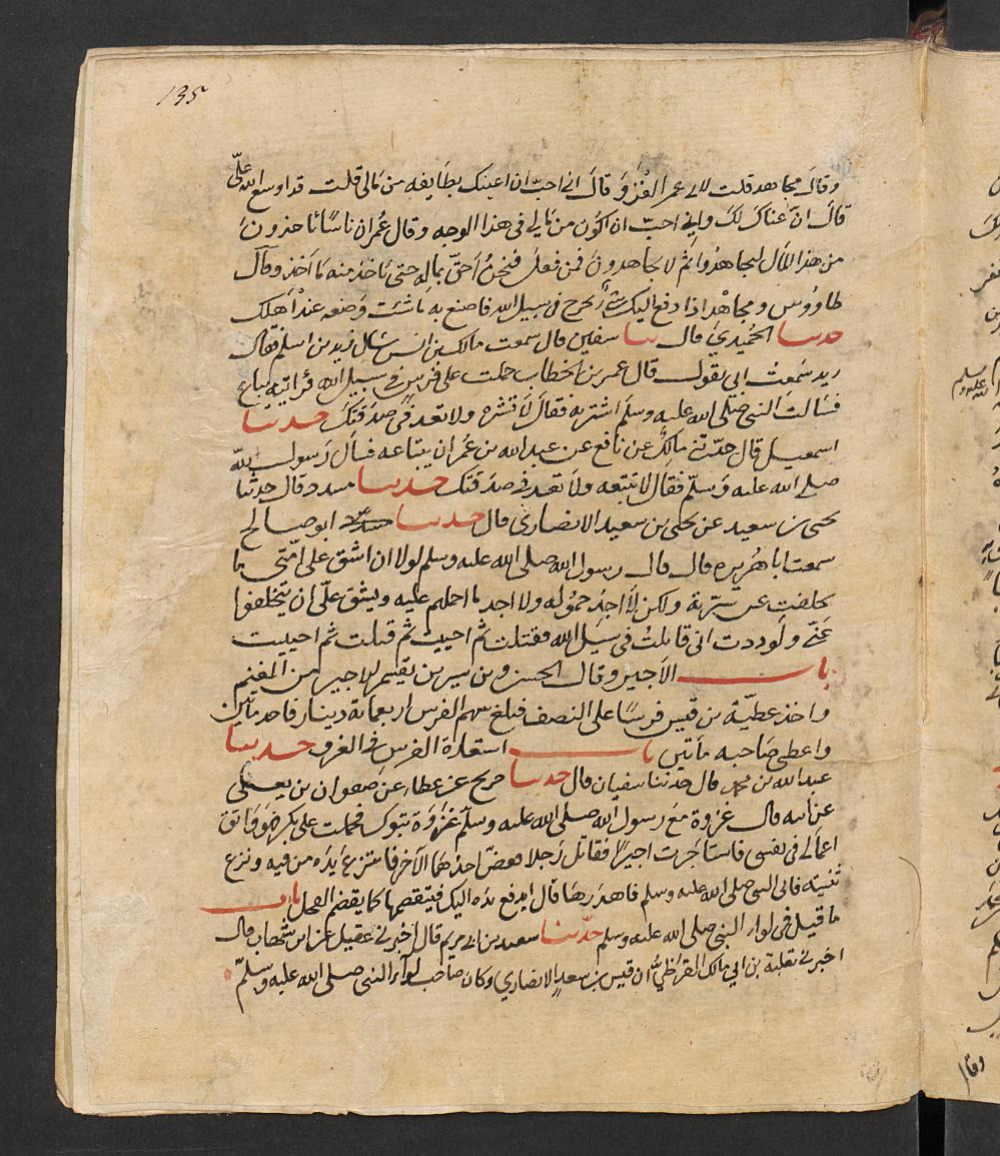 135
وقال مجاهد قلت لابن عمر الغزو قال اني احب ان اعينك بطايفه من مالي قلت قد اوسع الله علي
قال ان غناك لك واني احب ان اكون من مالي في هذا الوجه وقال عمر ان ناسا ياخذون
من هذا المال ليجاهدوا ثم لا يجاهدون فمن فعل فنحن احق بماله حتى ناخذ منه ما اخذ وقال
طاووس ومجاهد اذا دفع اليك شيء تخرج في سبيل الله فاصنع به ما شئت وضعه عند اهلك
حدثنا الحميدي قال ثنا سفين قال سمعت مالك بن انس سال زيد بن اسلم فقال
زيد سمعت ابي يقول قال عمر بن الخطاب حملت على فرس في سبيل الله فرايته يباع
فسالت النبي صلى الله عليه وسلم اشتريه فقال لا تشتره ولا تعد في صدقتك حدثنا
اسمعيل قال حدثني مالك عن نافع عن عبد الله بن عمر ان يبتاعه فسال رسول الله
صلى الله عليه وسلم فقال لا تبتعه ولا تعد في صدقتك حدثنا مسدد قال حدثنا
يحيى بن سعيد عن يحيى بن سعيد الانصاري قال حدثنا ابو صالح
سمعت ابا هريره قال قال رسول الله صلى الله عليه وسلم لولا ان اشق على امتي ما
تخلفت عن سرية ولكن لا اجد حموله ولا اجد ما احملهم عليه ويشق علي ان يتخلفوا
عني ولوددت اني قاتلت في سبيل الله فقتلت ثم احييت ثم قتلت ثم احييت
باب الاجير وقال الحسن وبن سيرين يقسم للاجير من المغنم
واخذ عطية بن قيس فرسا على النصف فبلغ سهم الفرس اربعماية دينار فاخذ مأتين
واعطى صاحبه مأتين باب استعارة الفرس في الغزو حدثنا
عبد الله بن محمد قال حدثنا سفيان قال حدثنا جريج عن عطاء عن صفوان بن يعلى
عن ابيه قال غزوة مع رسول الله صلى الله عليه وسلم غزوة تبوك فحملت على بكر فهو اوثق
اعمالي في نفسي فاستاجرت اجيرا فقاتل رجلا فعض احدهما الآخر فانتزع يده من فيه ونزع
ثنيته فاتى النبي صلى الله عليه وسلم فاهدرها قال ايدفع يده اليك فيتقضمها كما يقضم الفحل باب
ما قيل في لواء النبي صلى الله عليه وسلم حدثنا سعيد بن ابي مريم قال اخبرني عقيل عن ابن شهاب قال
اخبرني ثعلبة بن ابي مالك القرظي ان قيس بن سعد الانصاري وكان صاحب لواء النبي صلى الله عليه وسلم